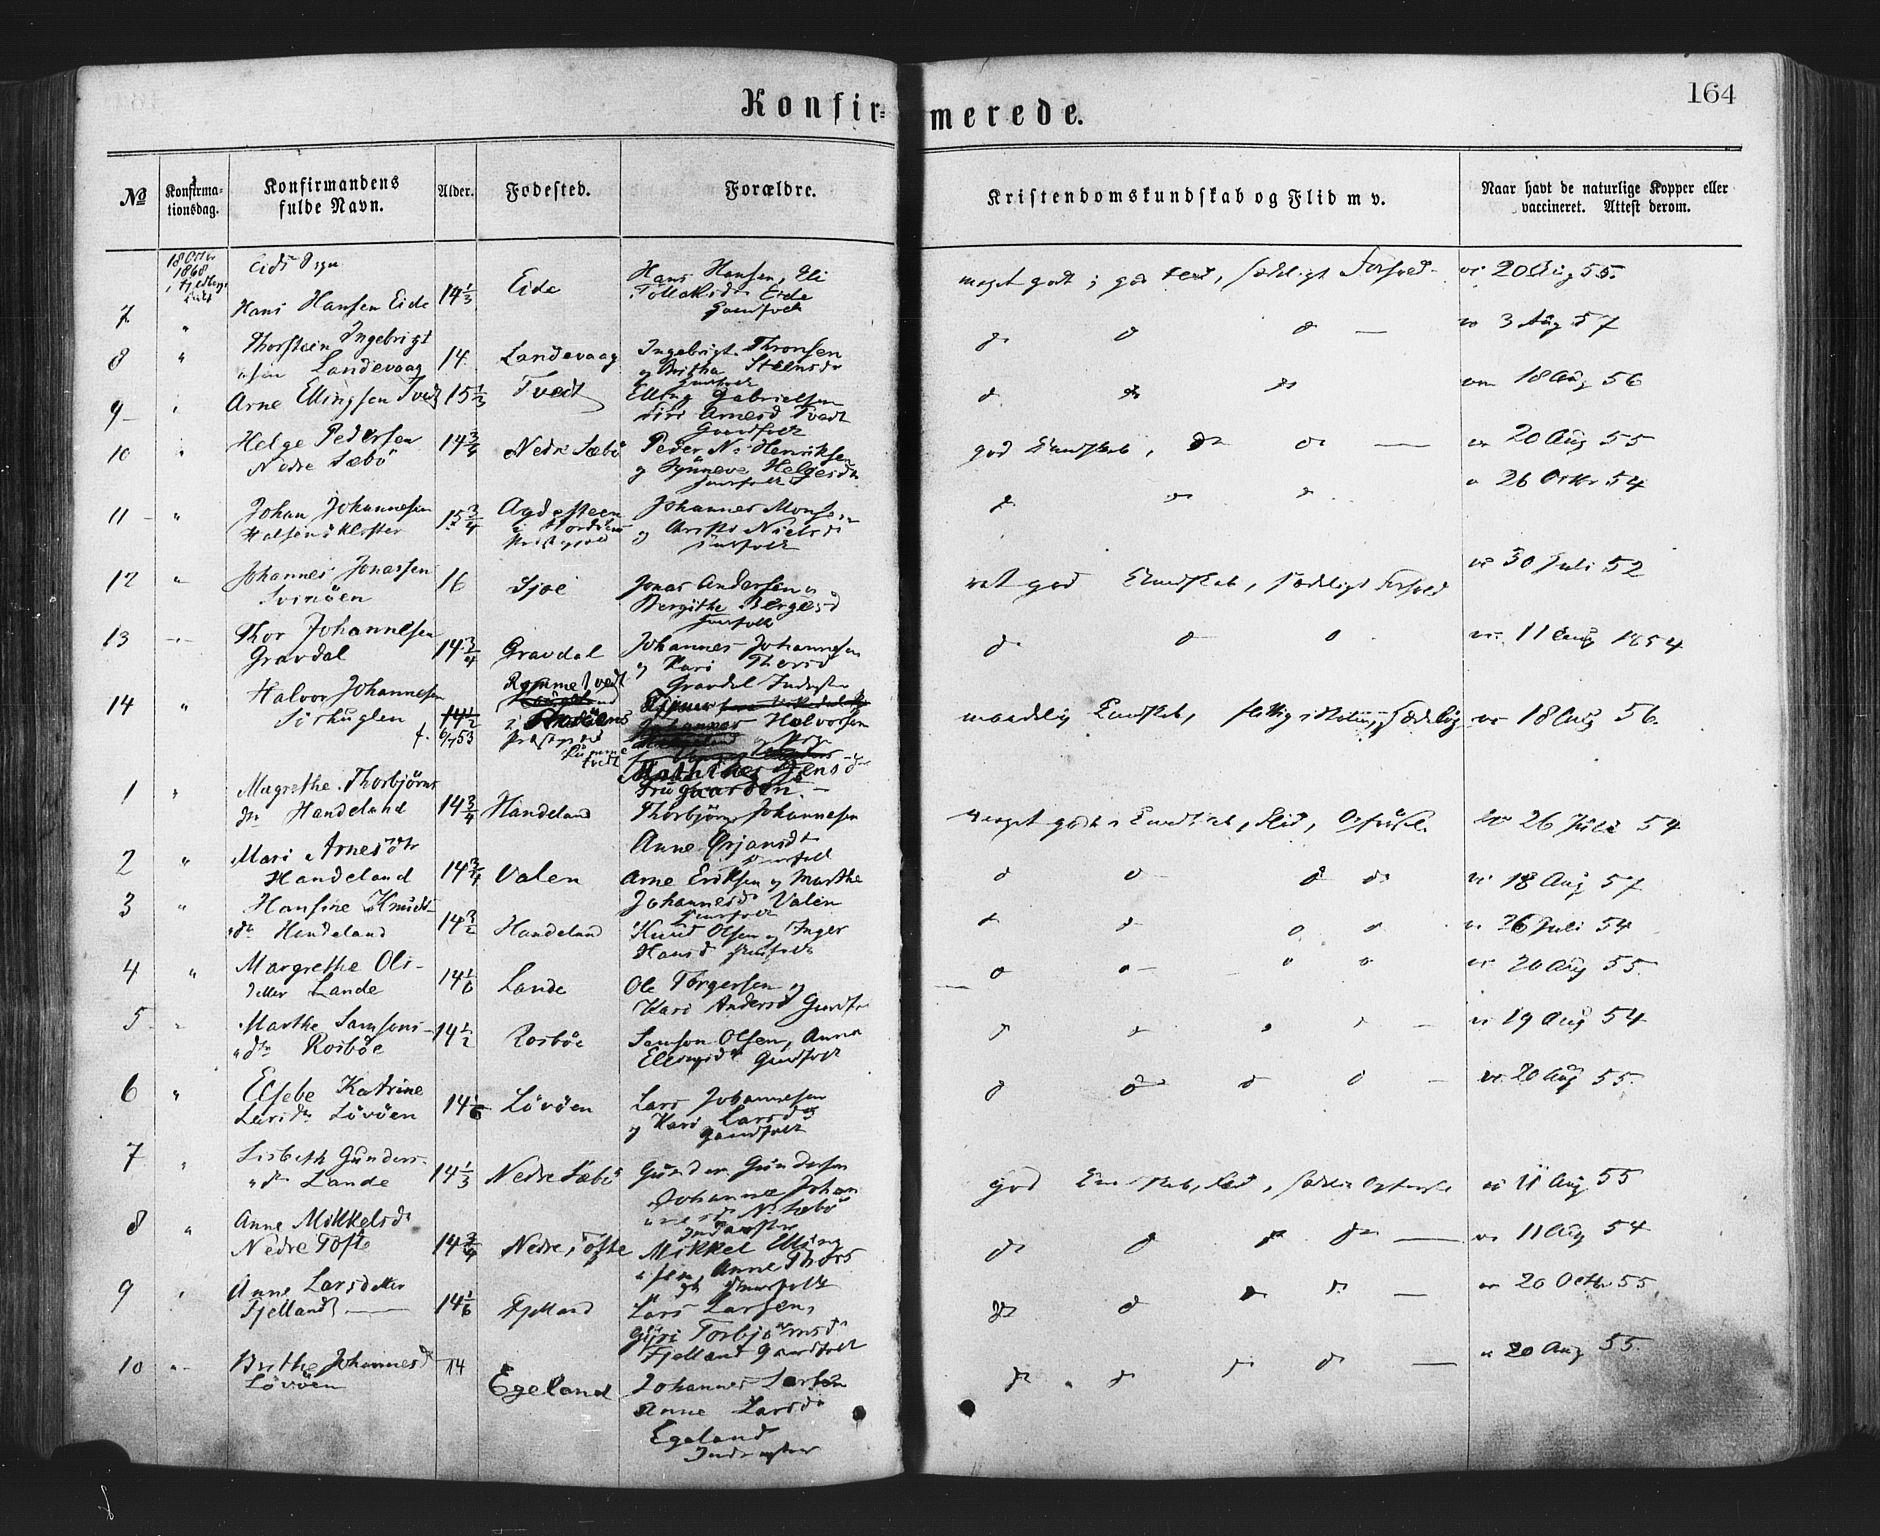 Konfir=
merede.
164
No
Konfirma-
tionsdag.
Konfirmandens
fulde Navn.
Alder.
Fødested.
Forældre.
Kristendomskundskab og Flid m v.
Naar havt de naturlige Kopper eller
vaccineret. Attest derom.
18 Octbr
1868
Eids Sogn
7
Hans Hansen Eide
14 1/3
Eide
Hans Hansen, Eli
Tollaksdr Eide
Gaardfolk
meget godt; god Flid, sædeligt Forhold
v. 20 Aug 55.
8
"
Thorstein Ingebrigt
sen Landevaag
14
Landevaag
Ingebrigt Thronsen
og Britha Steensdr
d
d
d —
v. 3 Aug 57
9
Arne Ellingsen Tvedt
15 1/3
Tvedt
Elling Gabrielsen
Siri Arnesd Tvedt
Gaardfolk
d
d
d
18 Aug 56
10
Helge Pedersen
Nedre Sæbö
14 3/4
Nedre Sæbö
Peder N: Henriksen
og Synneve Helgesdr
god Kundskab, d d —
v 20 Aug 55
11 -
"
Johan Johannesen
Halsenöekloster
15 3/4
Agdesteen
i Stordöens
Præstegjeld
Johannes Monsen
og Nielsd
Huusfolk
d
d
d
v 26 Octbr 54
12
"
Johannes Jonassen
Svinöen
16
Sjoe
Jonas Andersen og
Bergithe Bergesd
Huusfolk
ret god Kundskab, sædeligt Forhold
v. 30 Juli 52
13
Thor Johannesen
Gravdal
14 3/4
Gravdal
Johannes Johannesen
og Kari Thorsd
Gravdal Inderster
d
d
d
v. 11 Aug 1854
14
"
Halvor Johannesen
14 1/2
f. 6/7 53
Rommetvedt
Stordöens
Præstegjeld
Rommetvedt
Johannes Halvorsen
Mathilde Jensdr
maadelig Kundskab, flittig
v. 18 Aug 56.
1
"
Magrethe Thorbjörns
dtr Handeland
14 3/4
Handeland
Thorbjörn Johannesen
Anne Ørjansdr
Huusfolk
meget god Kundskab, Flid, Opförsel
v. 26 Juli 54
2
"
Mari Arnesdtr
Handeland
14 3/4
Valen
Arne Eriksen og Marthe
Johannesdr Valen
Huusfolk
d
d
d d
v. 18 Aug 57
3
"
Hansine Knuds-
dtr Handeland
14 3/2
Handeland
Knud Olsen og Inger
Hansd Huusfolk
d
d
d
d
v. 26 Juli 54
4
"
Margrethe Ols-
datter Lande
14 1/6
Lande
Ole Torgersen og
Kari Andersd Gaardf
d
d
d
d
v. 20 Aug 55
5
Marthe Samsons-
dtr Rosböe
14 1/2
Rosböe
Samson Olsen, Anna
Ellingsdr Gaardfolk
d
d
d
d —
v 19 Aug 54
6
"
Elsebe Katrine
Larsdtr Lövöen
14 1/6
Lövöen
Lars Johannesen
og Kari Larsdr
Gaardfolk
d
d
d
d —
v. 20 Aug 55.
7
Lisbeth Gunders-
dtr Lande
14 1/3
Nedre Sæbö
Gunder Gundersen
Johanne Johan
nesdr N: Sæbö
god Kundskab, Flid, Opförsel
v 11 Aug 55
8
"
Anne Mikkelsdr
Nedre Tofte
14 3/4
Nedre Tofte
Mikkel Elling
sen, Anne Thors
dtr Huusfolk
d
d
d
d —
v. 11 Aug 54
9
Anne Larsdatter
Fjelland —
14 1/6
Fjelland
Lars Larsen,
Guri Torbjörnsdr
Fjelland Gaardfolk
d
d
d
d —
v 20 Octbr 55
10
Brithe Johannesdr
Lövöen
14
Egeland
Johannes Larsen
Anne Larsdr
Egeland
Inderster
d
d
d
d —
v 20 Aug 55.